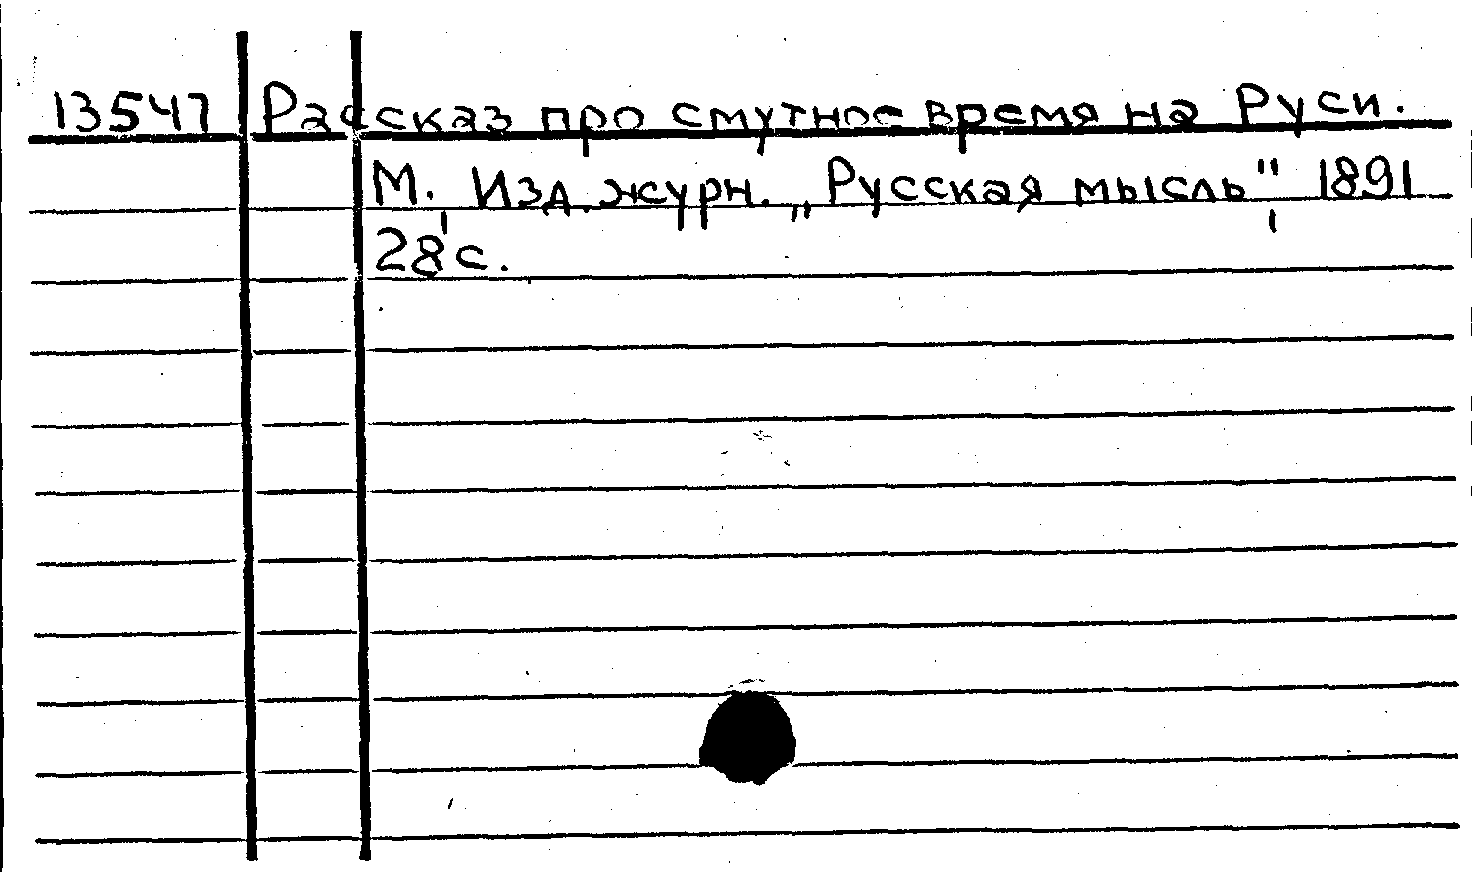 13547 Рассказ про смутное время на Руси.
М. Изд. журн. „Русская мысль", 1891
28 с.